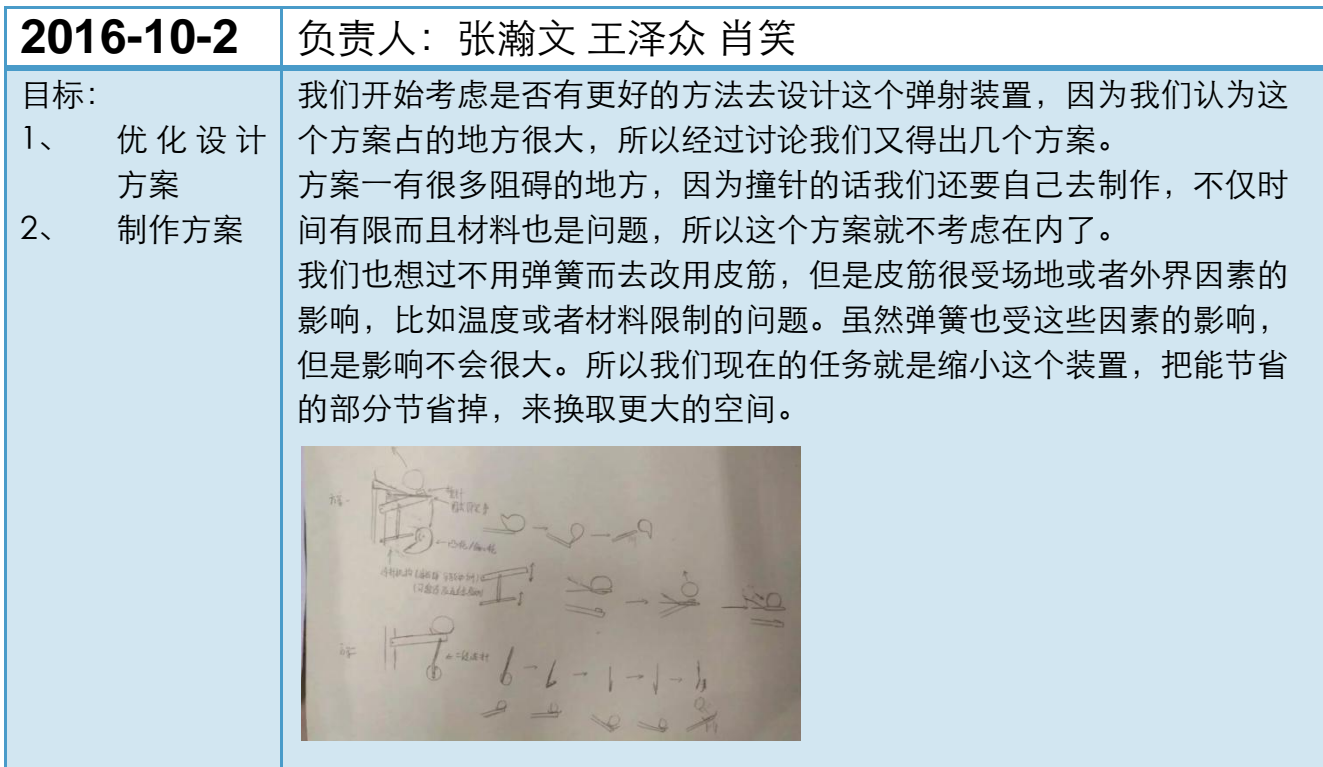 2016-10-2
负责人：张瀚文 王泽众 肖笑
目标：
1、 优化设计
方案
2、 制作方案
我们开始考虑是否有更好的方法去设计这个弹射装置，因为我们认为这
个方案占的地方很大，所以经过讨论我们又得出几个方案。
方案一有很多阻碍的地方，因为撞针的话我们还要自己去制作，不仅时
间有限而且材料也是问题，所以这个方案就不考虑在内了。
我们也想过不用弹簧而去改用皮筋，但是皮筋很受场地或者外界因素的
影响，比如温度或者材料限制的问题。虽然弹簧也受这些因素的影响，
但是影响不会很大。所以我们现在的任务就是缩小这个装置，把能节省
的部分节省掉，来换取更大的空间。
撞针